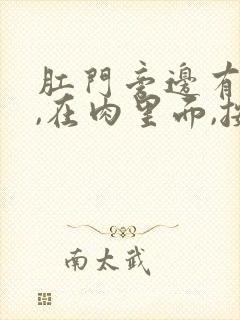 肛門旁邊有
,在肉里而,按
南太武